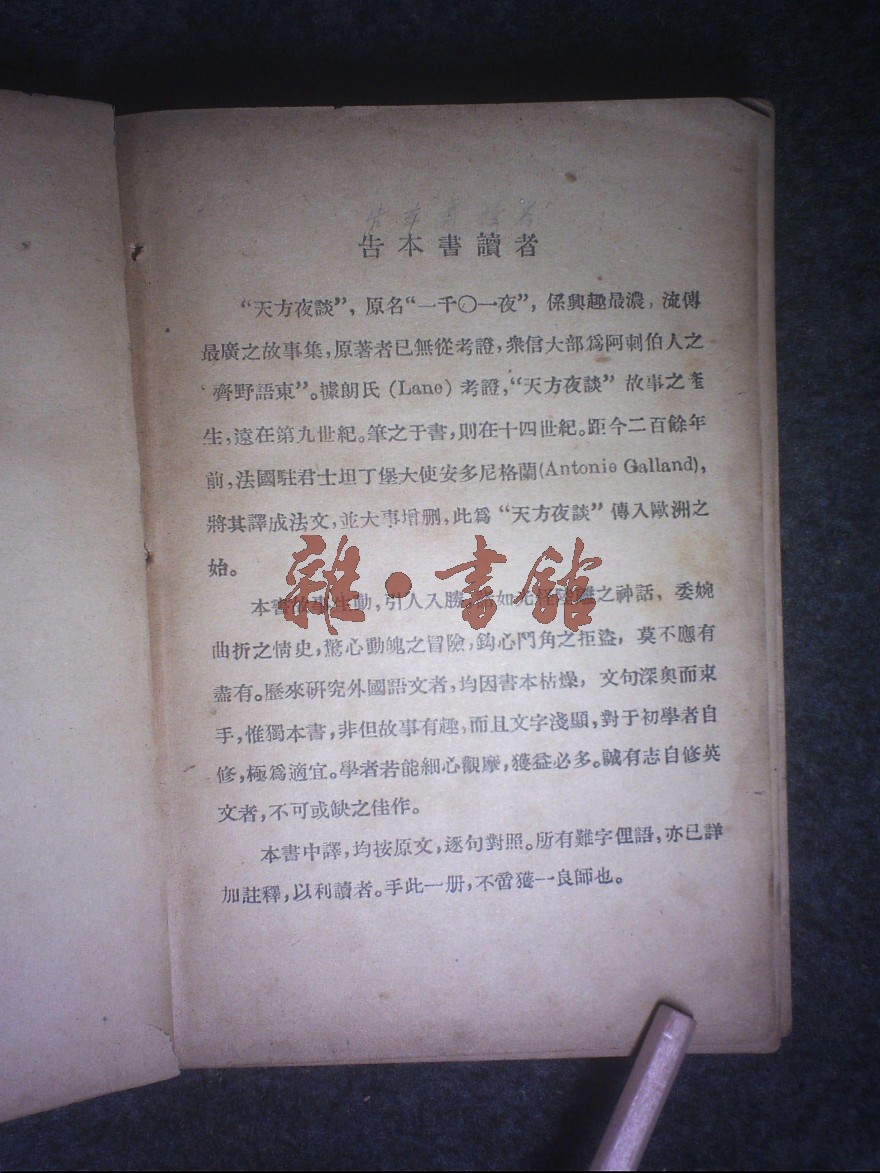 告本書讀者
告本書讀者
“天方夜談”，原名“一千〇一夜”，係興趣最濃，流傳
最廣之故事集，原著者已無從考證，衆信大部爲阿剌伯人之
‘齊野語東”。據朗氏 (Lane) 考證，“天方夜談” 故事之產
生，遠在第九世紀。筆之于書，則在十四世紀。距今二百餘年
前，法國駐君士坦丁堡大使安多尼格蘭(Antonie Galland)，
將其譯成法文，並大事增删，此爲 “天方夜談” 傳入歐洲之
始。
雜·書館
本書故事生動，引人入勝。之神話，委婉
曲折之情史，驚心動魄之冒險，鈎心鬥角之拒盜，莫不應有
盡有。歷來研究外國語文者，均因書本枯燥，文句深奥而束
手，惟獨本書，非但故事有趣，而且文字淺顯，對于初學者自
修，極爲適宜。學者若能細心觀摩，獲益必多。誠有志自修英
文者，不可或缺之佳作。
本書中譯，均按原文，逐句對照。所有難字俚語，亦已詳
加註釋，以利讀者。手此一册，不啻獲一良師也。